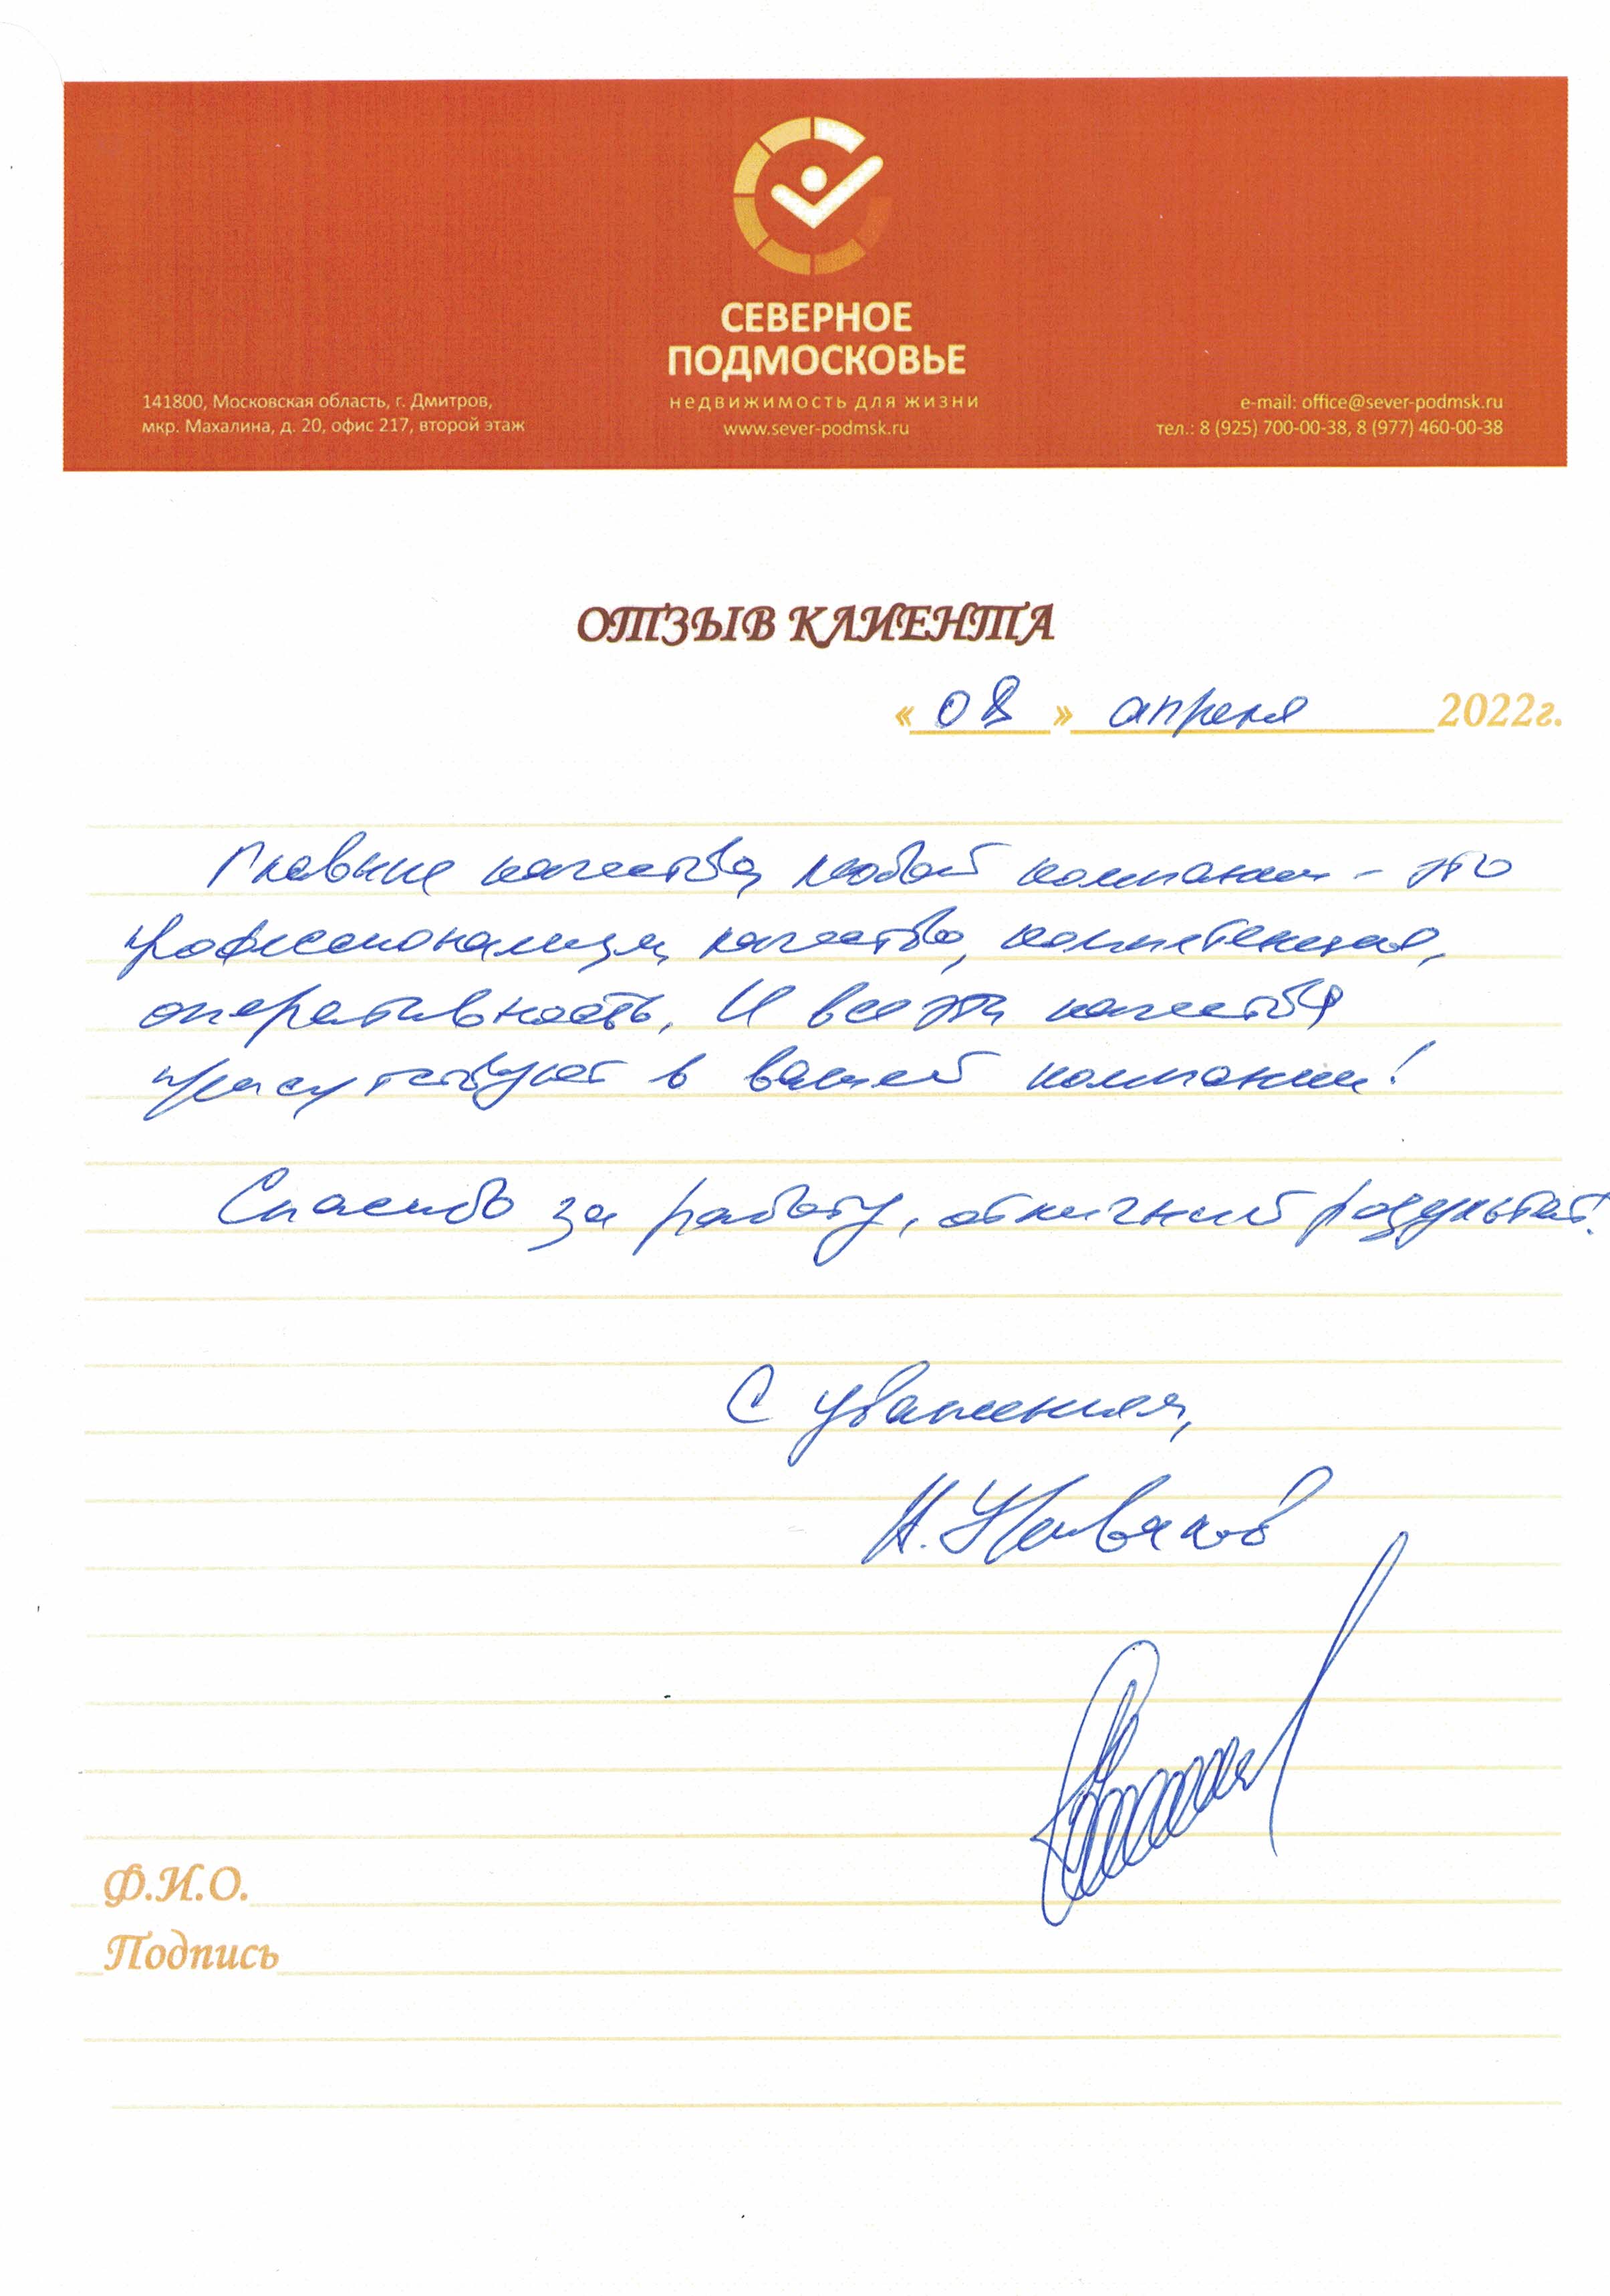 СЕВЕРНОЕ
ПОДМОСКОВЬЕ
недвижимость для жизни
www.sever-podmsk.ru
141800, Московская область, г. Дмитров,
мкр. Махалина, д. 20, офис 217, второй этаж
e-mail: office@sever-podmsk.ru
тел.: 8 (925) 700-00-38, 8 (977) 460-00-38
ОТЗЫВ КЛИЕНТА
«08» апреля 2022г.
Главные качества любой компании - это
профессионализм, качество, компетенция,
оперативность. И все эти качества
присутствуют в вашей компании!
Спасибо за работу, отличный результат.
С уважением,
Ф.И.О.
Подпись